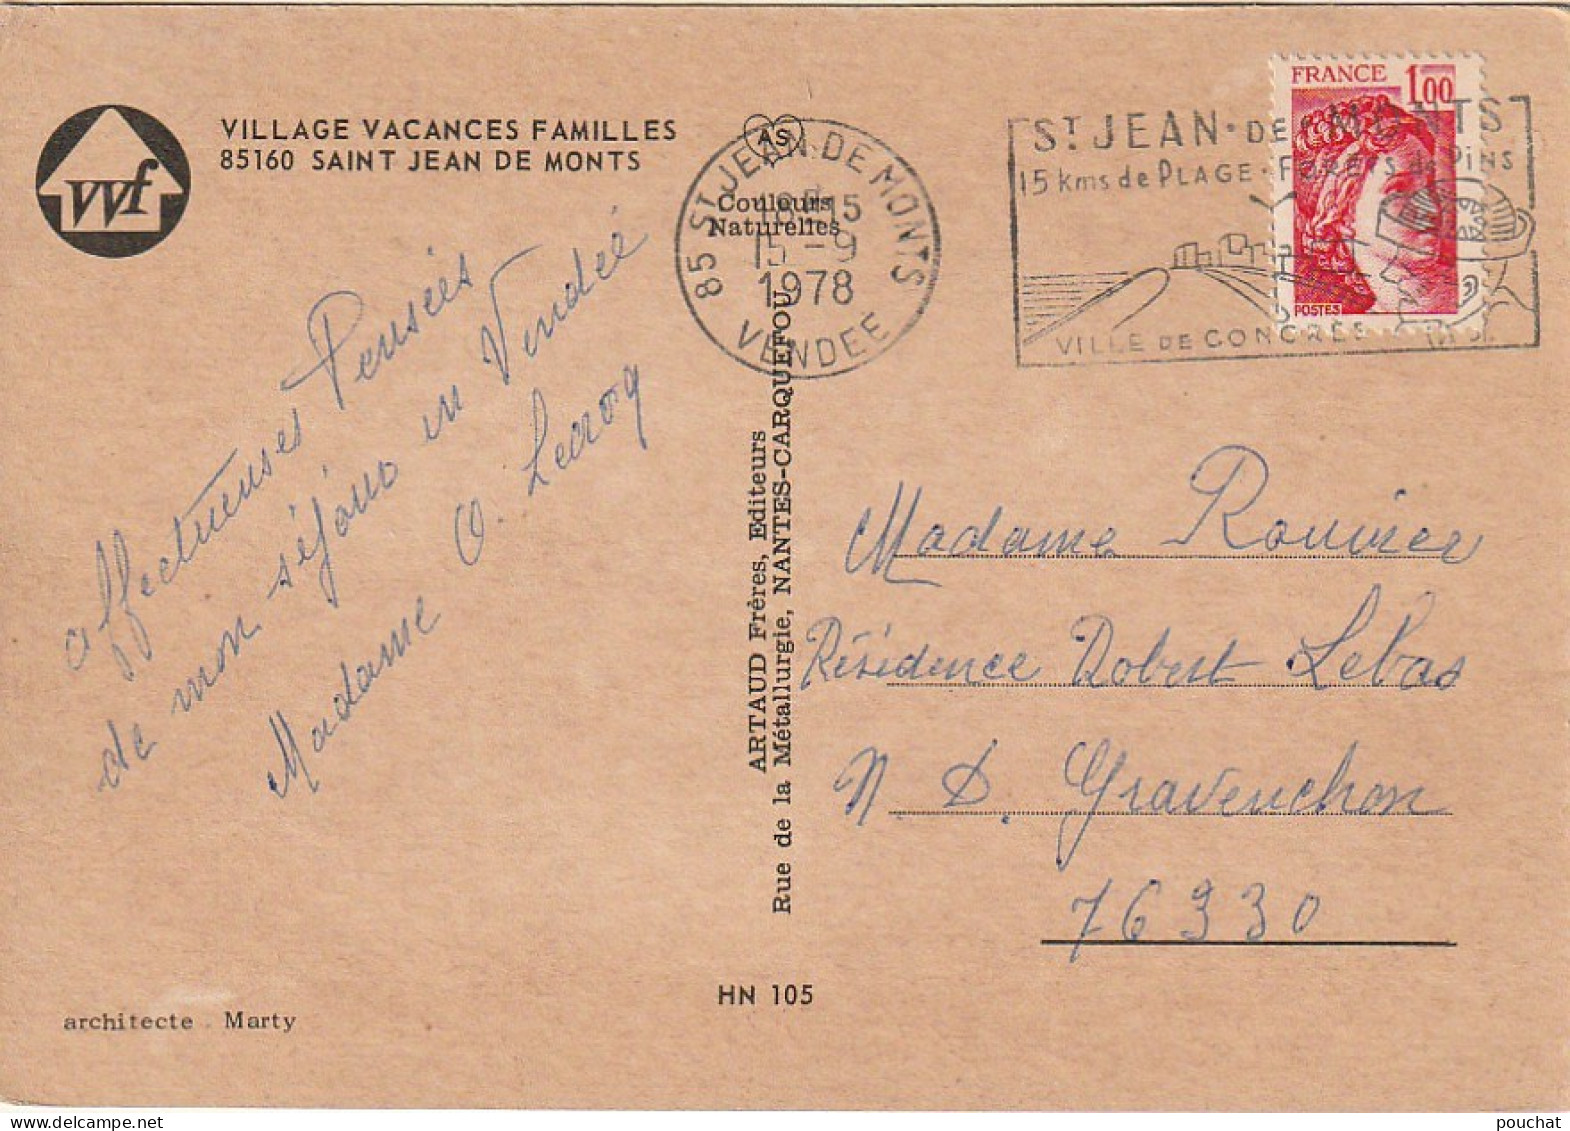 vvf
VILLAGE VACANCES FAMILLES
85160 SAINT JEAN DE MONTS
AS
Couleurs
Naturelles
85 ST JEAN DE MONTS
18H15
15 -9
1978
VENDEE
ST JEAN-DE-MONTS
15 kms de PLAGE-FORETS de PiNS
VILLE DE CONGRES
FRANCE 1,00
POSTES
affectueuses Pensées
de mon séjour en Vendée
Madame O. Lecroq
ARTAUD Frères, Editeurs
Rue de la Métallurgie, NANTES-CARQUEFOU
Madame Rouvier
Résidence Robert Lebas
N. D. Gravenchon
76330
HN 105
architecte . Marty
pouchat